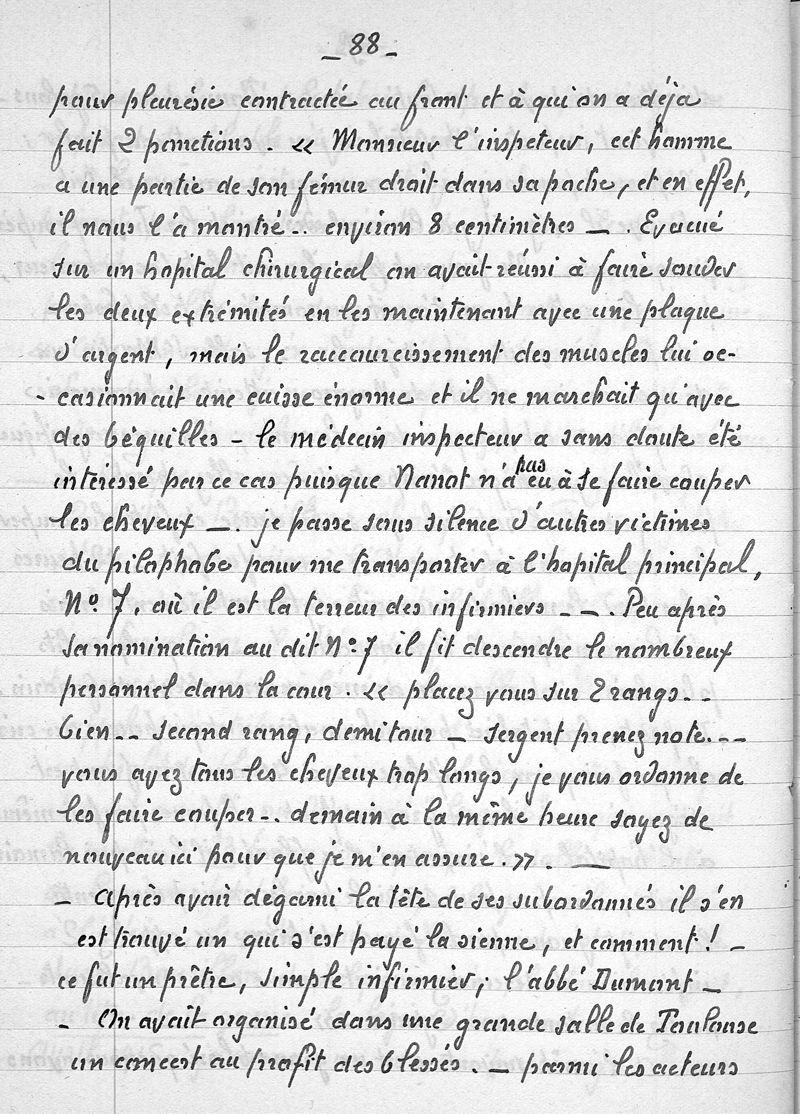 _ 88 _
pour pleurésie contractée au front et à qui on a déja
fait 2 ponctions. « Monsieur l'inspeteur, cet homme
a une partie de son fémur droit dans sa poche, et en effet,
il nous l'a montré -- environ 8 centimètres _ . Evacué
sur un hopital chirurgical on avait réussi à faire souder
les deux extrémités en les maintenant avec une plaque
d'argent, mais le raccourcissement des muscles lui oc-
- casionnait une cuisse énorme et il ne marchait qu'avec
des béquilles - le médecin inspecteur a sans doute été
intéressé par ce cas puisque Nanot n'a pas eu à se faire couper
les cheveux _ . je passe sous silence d'autres victimes
du pilophobe pour me transporter à l'hopital principal,
N° 7, où il est la terreur des infirmiers _ _ . Peu après
sa nomination au dit N° 7 il fit descendre le nombreux
personnel dans la cour. « placez vous sur 2 rangs --
bien -- second rang, demi tour _ sergent prenez note. --
vous avez tous les cheveux trop longs, je vous ordonne de
les faire couper -. demain à la même heure soyez de
nouveau ici pour que je m'en assure. ». _
- après avoir dégarni la tête de ses subordonnés il s'en
est trouvé un qui s'est payé la sienne, et comment ! -
ce fut un prêtre, simple infirmier, l'abbé Dumont _
- On avait organisé dans une grande salle de Toulouse
un concert au profit des blessés. _ parmi les acteurs